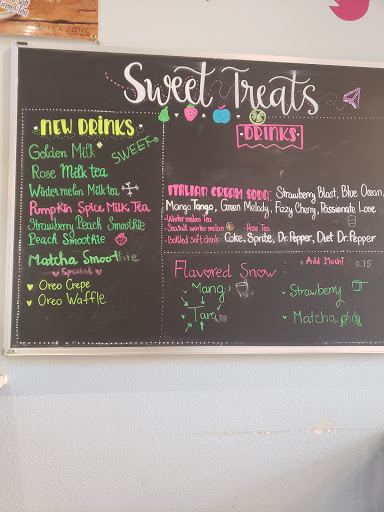 TEA ZONE
Sweet Treats
NEW DRINKS
SWEET
Golden Milk
Rose Milk tea
Winter melon Milk tea
Pumpkin Spice Milk Tea
Strawberry Peach Smoothie
Peach Smoothie
Matcha Smoothie
Special
Oreo Crepe
Oreo Waffle
DRINKS
ITALIAN CREAM SODA: Strawberry Blast, Blue Ocean,
Mango Tango, Green Melody, Fizzy Cherry, Passionate Love
• Winter melon Tea
• Seasalt winter melon • Rose Tea
• Bottled soft drink: Coke, Sprite, Dr. Pepper, Diet Dr. Pepper
Flavored Snow:
Mang
Taro
Add Mochi 0.75
Strawberry
Matcha